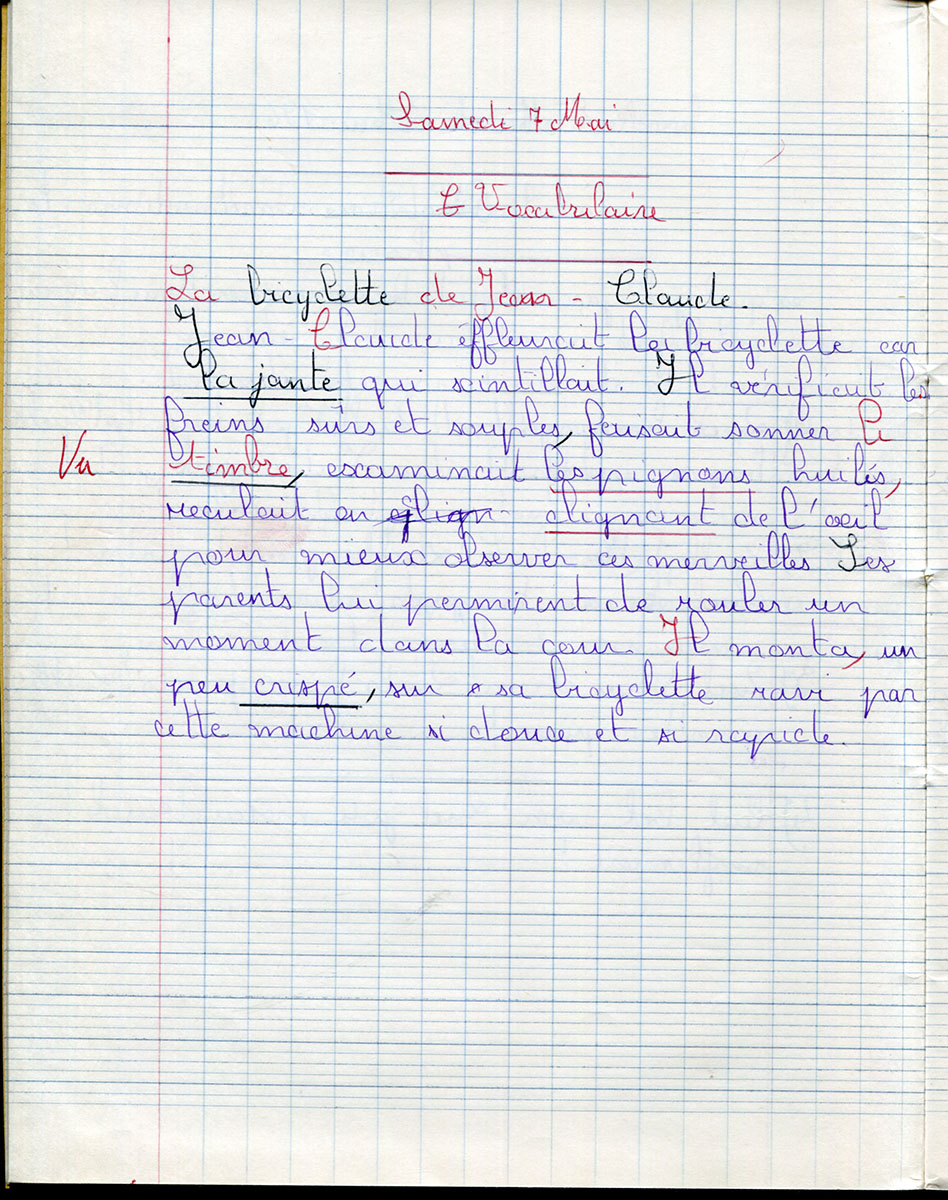 Samedi 7 Mai
Vocabulaire
La bicyclette de Jean - Claude.
Jean - Claude éffleurait la bicyclette car
la jante qui scintillait. Il vérifiait les
freins sûrs et souples, faisait sonner le
Vu timbre, examinait les pignons huilés,
reculait en clignant de l'oeil
pour mieux observer ces merveilles Ses
parents lui permirent de rouler un
moment dans la cour. Il monta, un
peu crispé, sur sa bicyclette ravi par
cette machine si douce et si rapide.